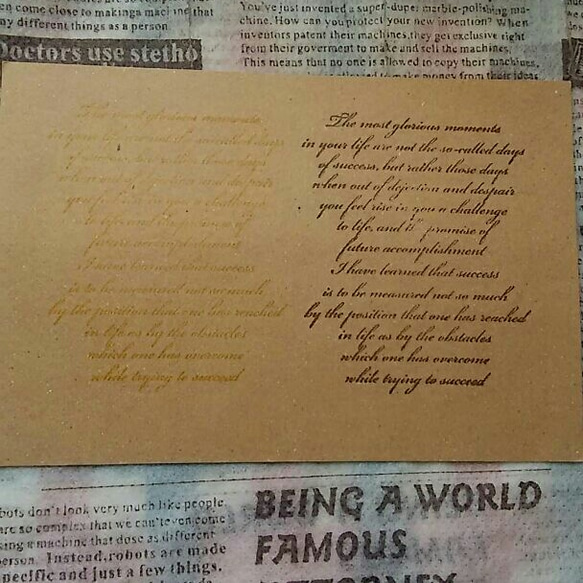 en come close to makings machine that
ny different things as a person
Doctors use stetho
You've just invented a super-duper marble-polishing ma-
chine. How can you protect your new invention? When
inventors patent their machines,they get exclusive right
from their goverment to make and sell the machines.
This means that no one is allowed to copy their machines,
allowed to make money from their ideas
The most glorious moments
in your life are not the so-called days
of success, but rather those days
when out of dejection and despair
you feel rise in you a challenge
to life, and promise of
future accomplishment
I have learned that success
is to be measured not so much
by the position that one has reached
in life as by the obstacles
which one has overcome
while trying to succeed
The most glorious moments
in your life are not the so-called days
of success, but rather those days
when out of dejection and despair
you feel rise in you a challenge
to life, and promise of
future accomplishment
I have learned that success
is to be measured not so much
by the position that one has reached
in life as by the obstacles
which one has overcome
while trying to succeed
bots don't look very much like people.
are so complex that we can't even come
king a machine that dose as different
person. Instead.robots are made
pecific and just a few things.
BEING A WORLD
FAMOUS